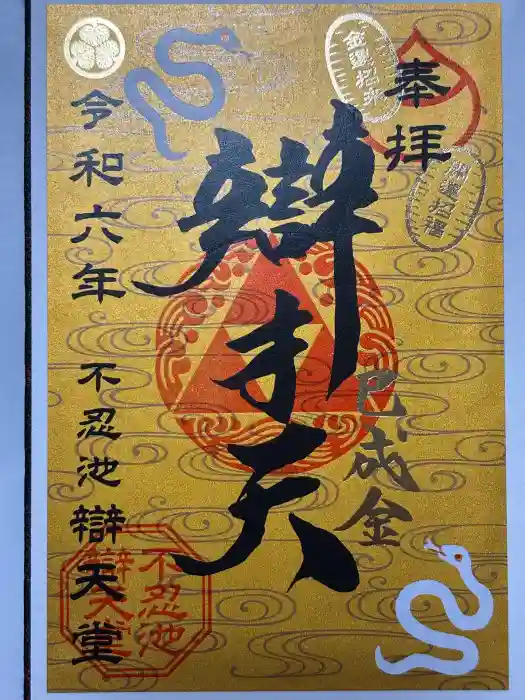 奉拝
金運招来
開運招福
辯才天
巳成金
令和六年 不忍池 辯天堂
不忍池
辯天堂